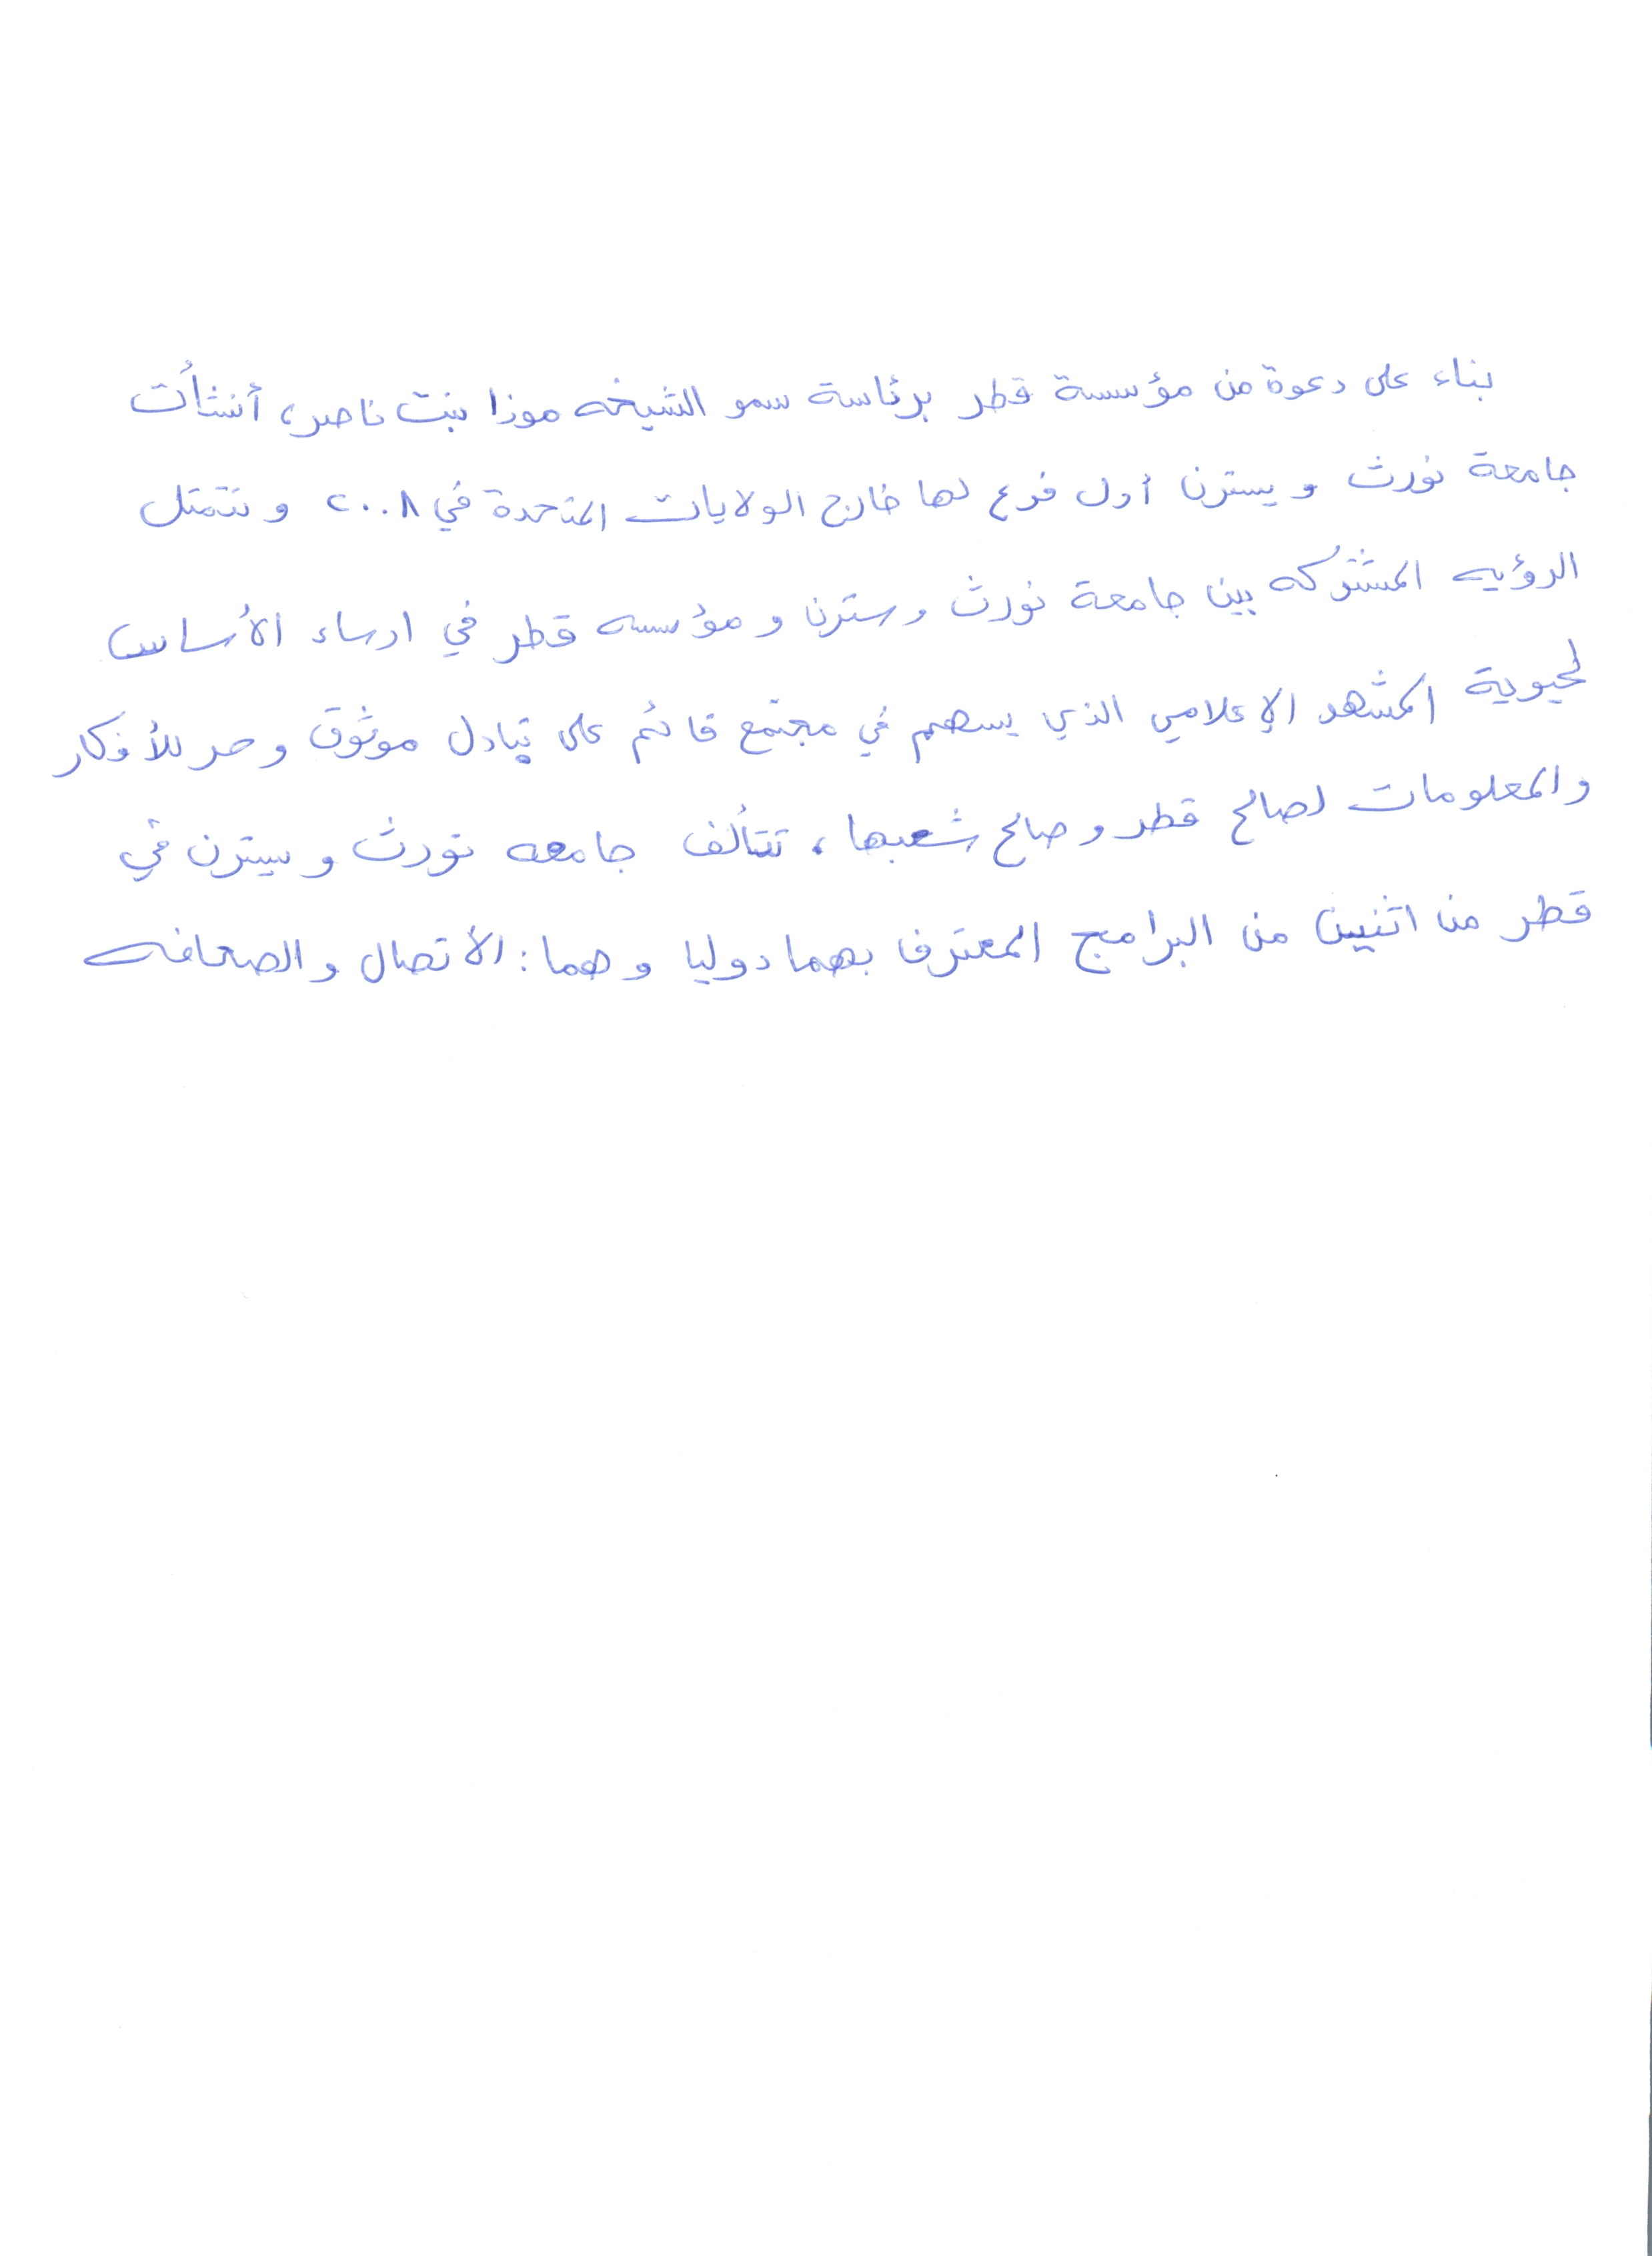 بناء على دعوة من مؤسسة قطر برئاسة سمو الشيخه موزا بنت ناصر، أنشأت
جامعة نورث ويسترن أول فرع لها خارج الولايات المتحدة في ٢٠٠٨ وتتمثل
الرؤيه المشتركه بين جامعة نورث وسترن ومؤسسه قطر في ارساء الأساس
لحيوية المشهد الإعلامي الذي يسهم في مجتمع قائم على تبادل موثوق وحر للأفكار
والمعلومات لصالح قطر وصالح شعبها، تتألف جامعه نورث ويسترن في
قطر من اثنين من البرامج المعترف بهما دوليا وهما: الاتصال والصحافه